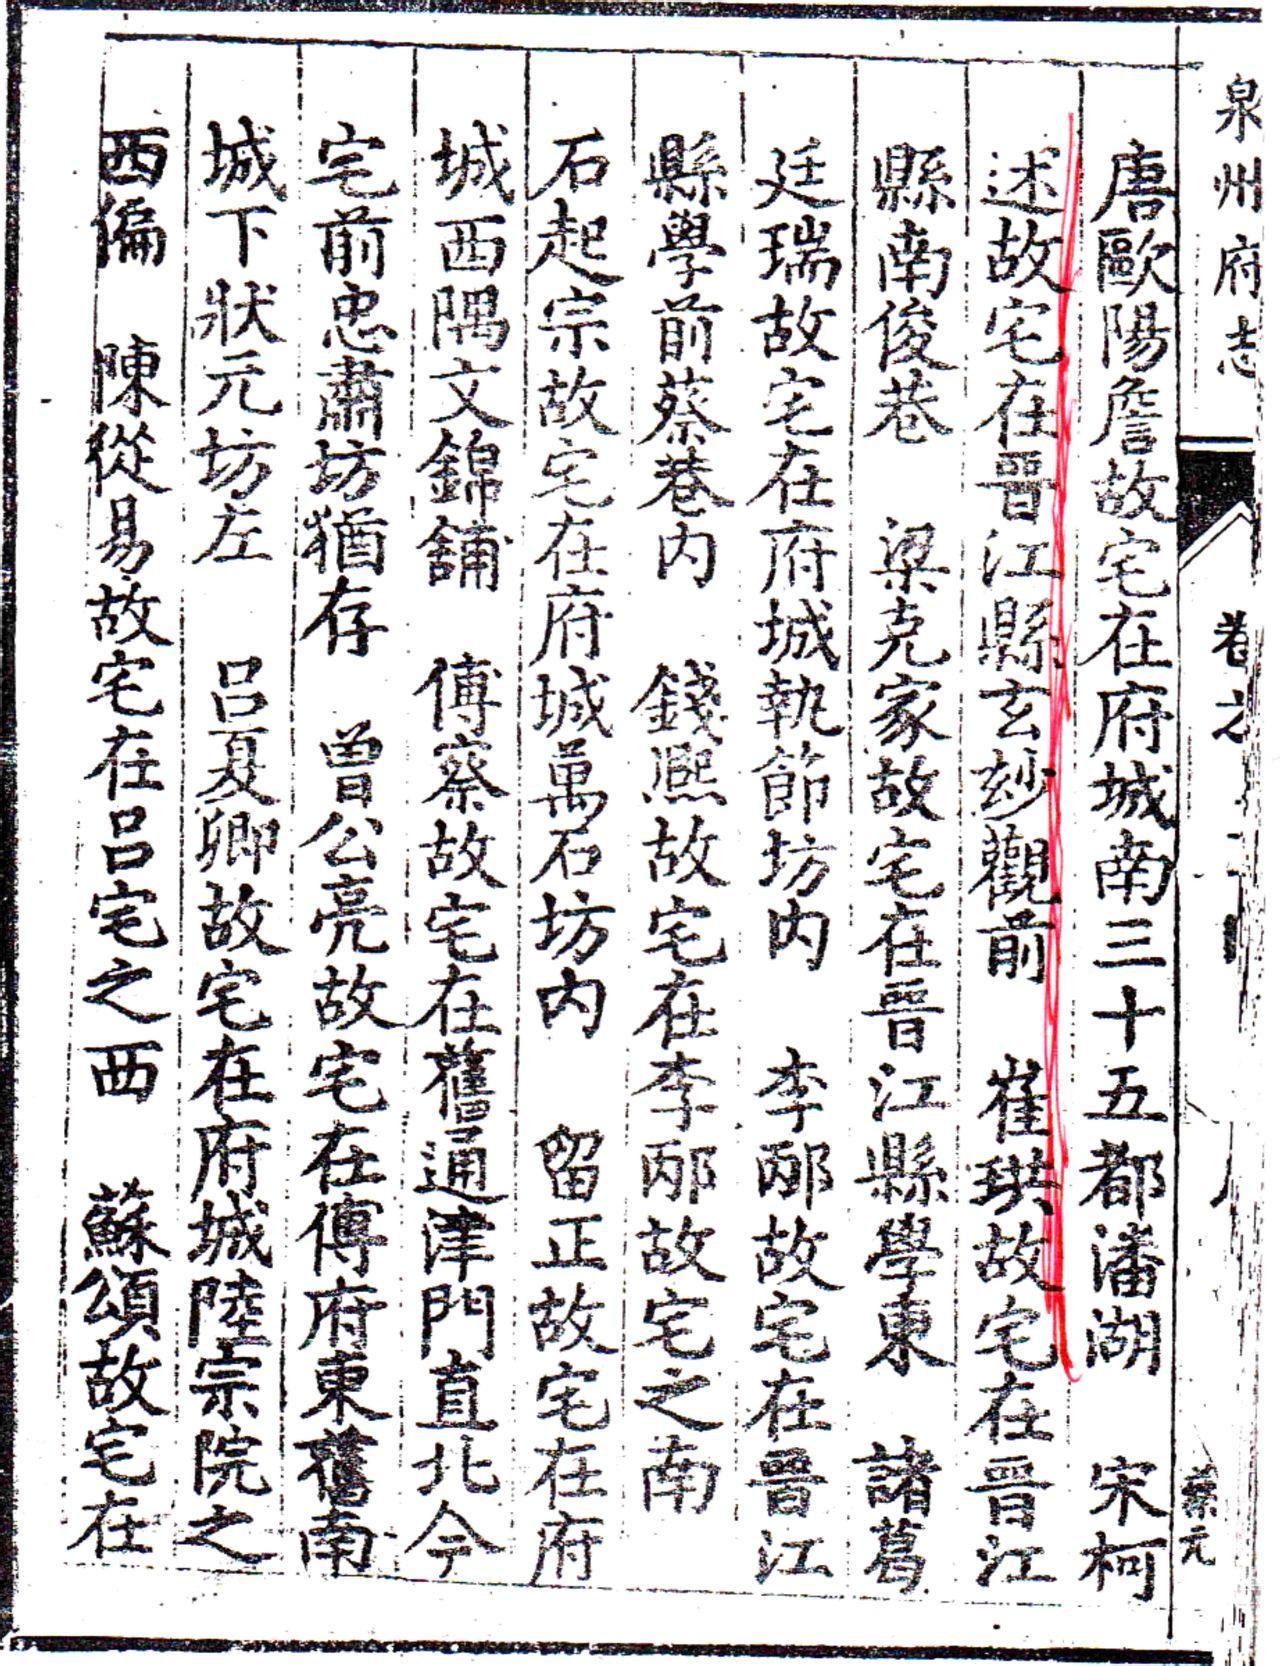 泉州府志
卷之
蔡元
唐歐陽詹故宅在府城南三十五都潘湖　宋柯
述故宅在晉江縣玄妙觀前　崔珙故宅在晉江
縣南俊巷　梁克家故宅在晉江縣學東　諸葛
廷瑞故宅在府城執節坊內　李邴故宅在晉江
縣學前蔡巷內　錢熙故宅在李邴故宅之南
石起宗故宅在府城萬石坊內　留正故宅在府
城西隅文錦舖　傅察故宅在舊通津門直北今
宅前忠肅坊猶存　曾公亮故宅在傅府東舊南
城下狀元坊左　呂夏卿故宅在府城陸宗院之
西偏　陳從易故宅在呂宅之西　蘇頌故宅在